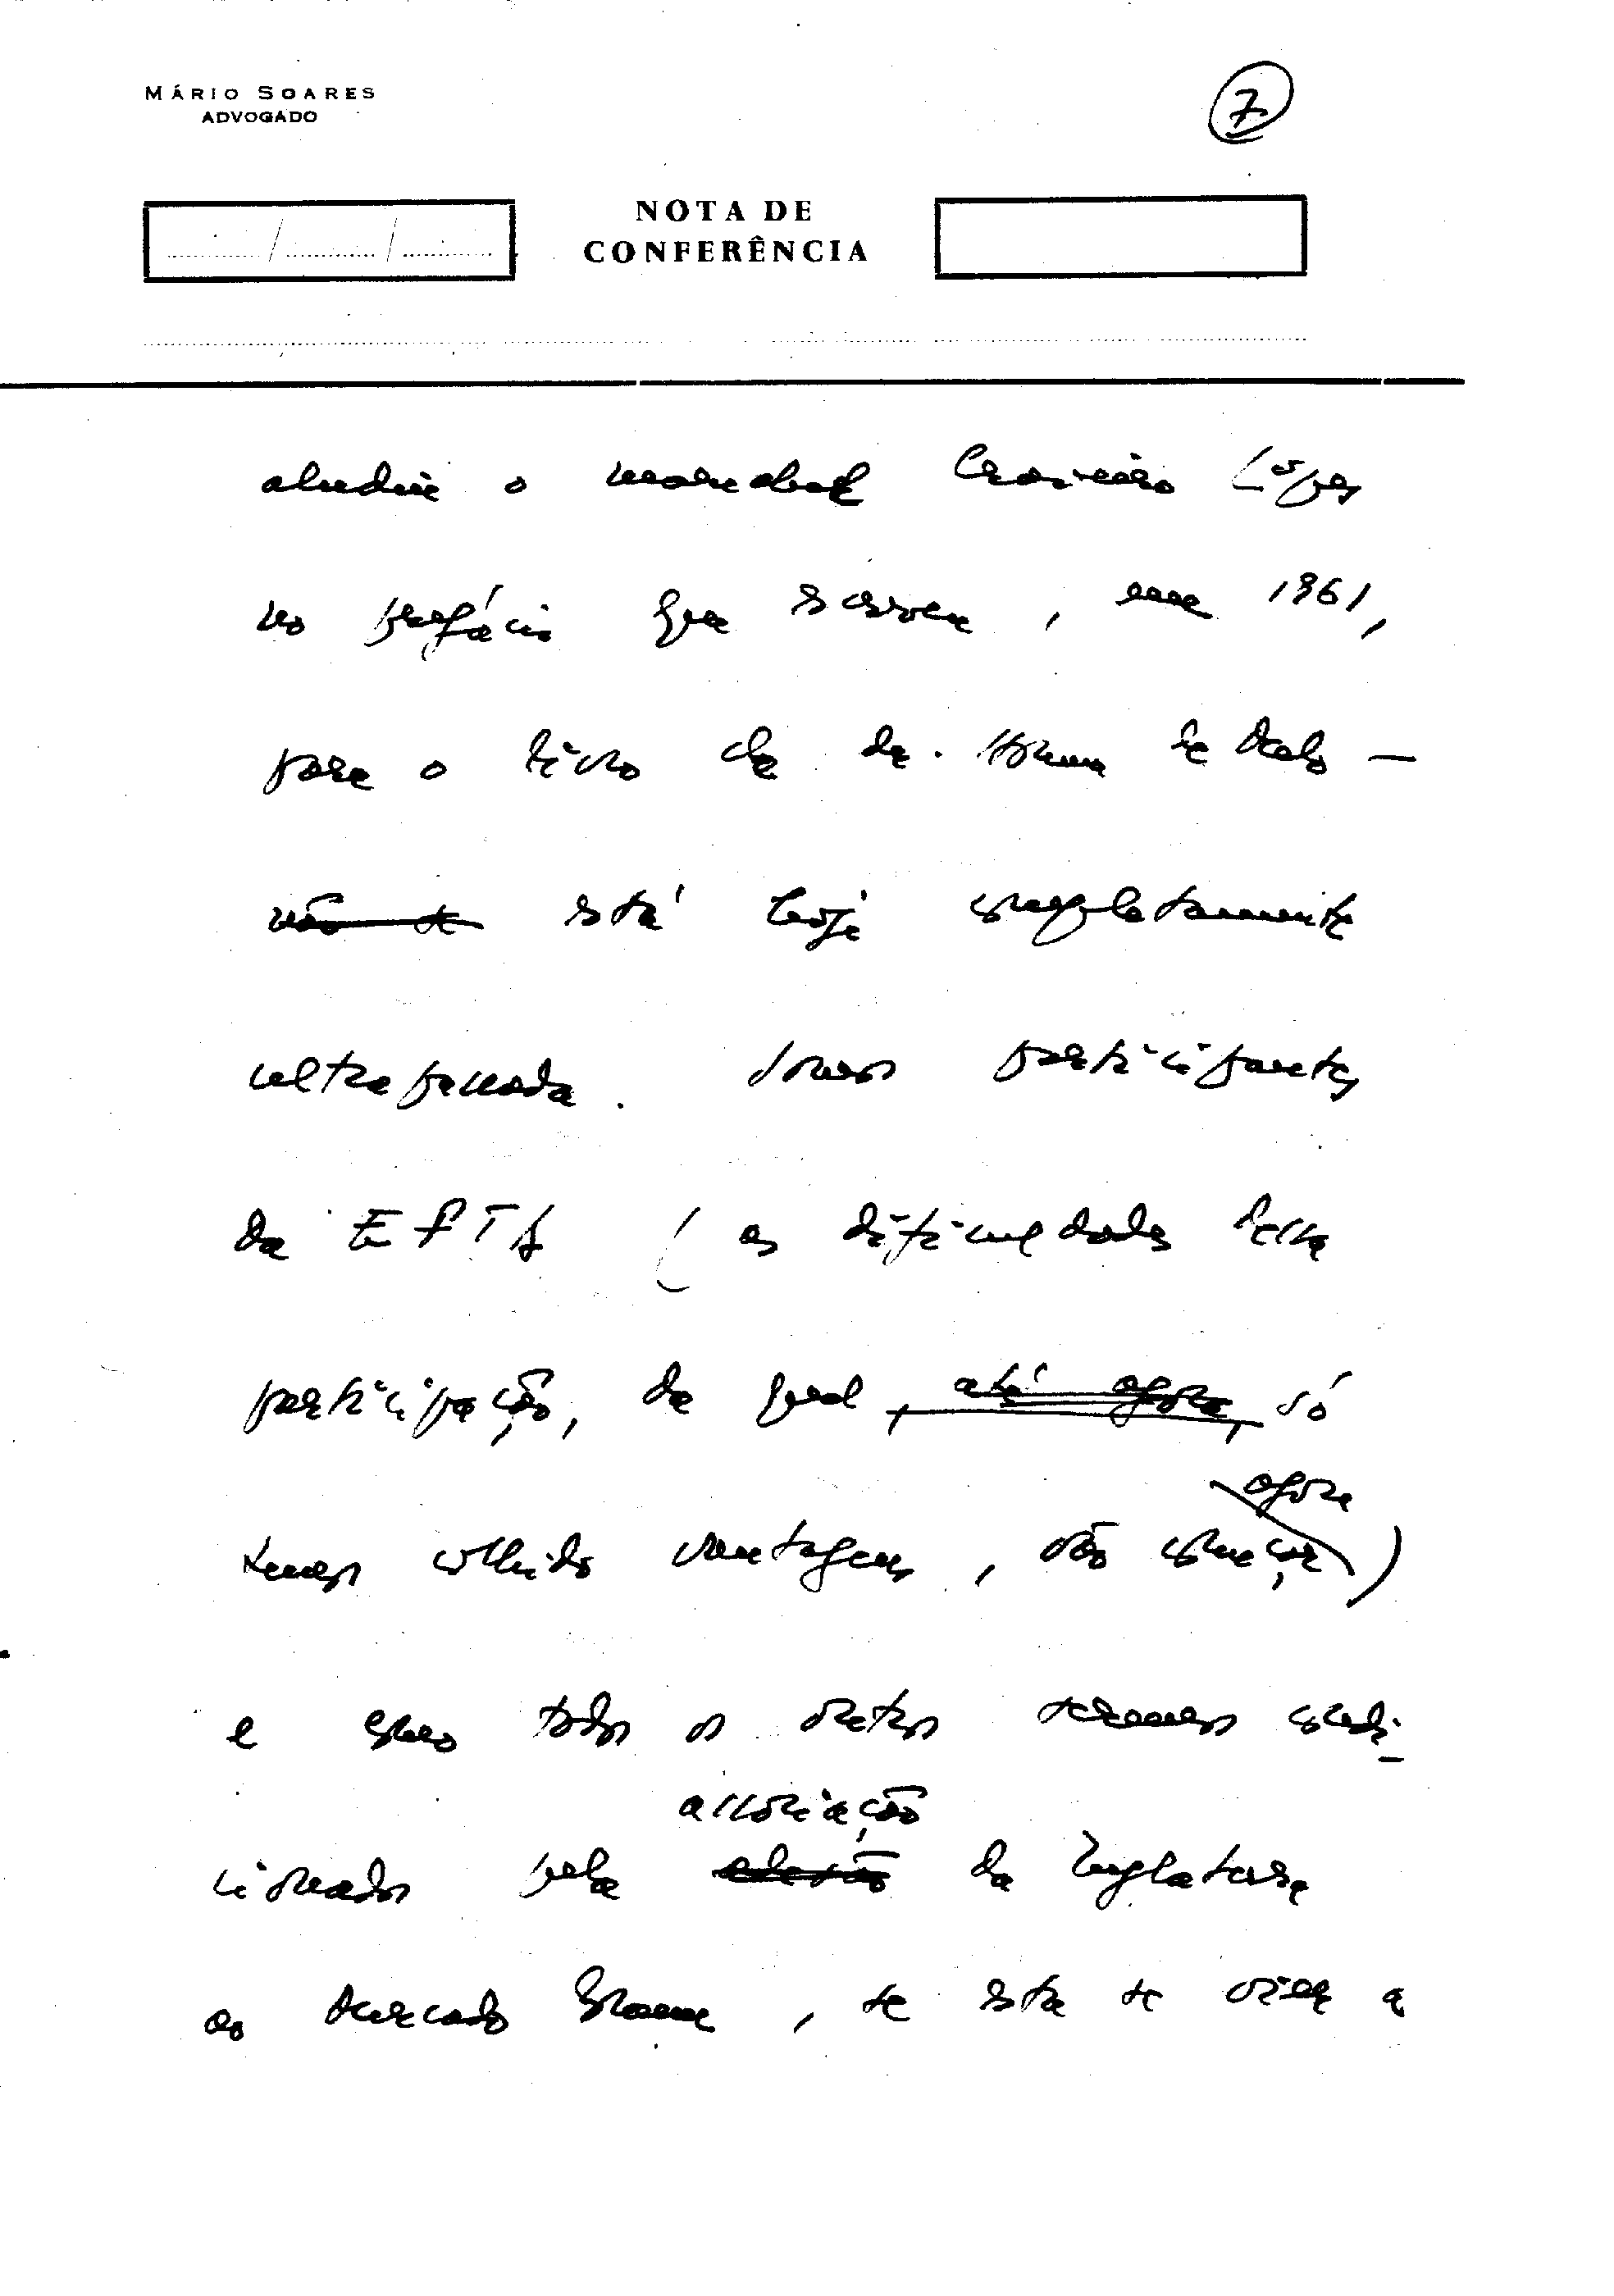 MÁRIO SOARES
ADVOGADO
7
NOTA DE
CONFERÊNCIA
aludiu o marechal Craveiro Lopes
no prefácio que escreveu, em 1961,
para o livro de de. de Melo —
não se está hoje completamente
ultrapassada. Somos participantes
da EFTA (as dificuldades dessa
participação, da qual, até agora, só
temos colhido vantagens, vão começar agora)
e como todos os outros seremos condi-
cionados pela adesão associação da Inglaterra
ao Mercado Comum, se esta se vier a